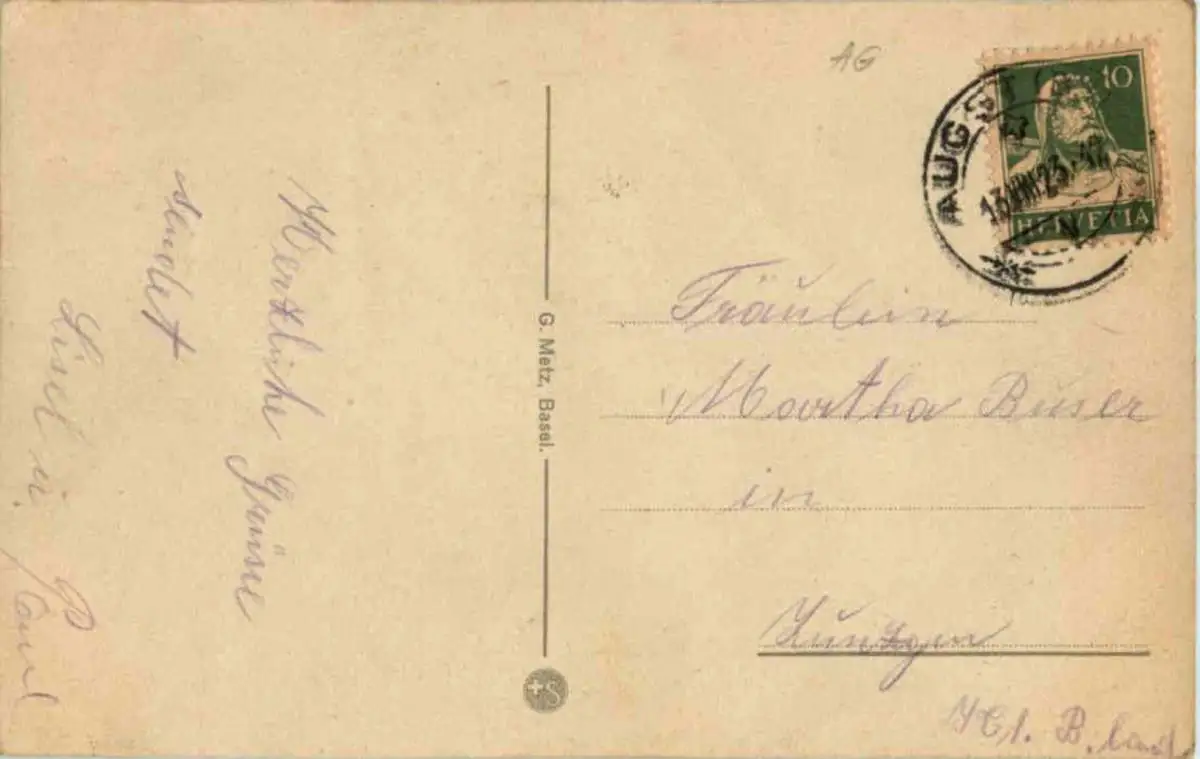 Herzliche Grüsse
sendet
Lisel u. Paul
G. Metz, Basel.
AG
10
HELVETIA
AUGST
13.VIII.23.
Fräulein
Martha Buser
in
Zunzgen
Kt. B. land